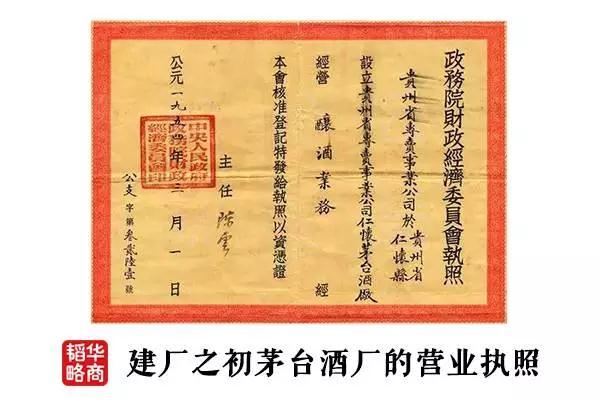 政務院財政經濟委員會執照
貴州省專賣事業公司於貴州省
仁懷縣
設立貴州省專賣事業公司仁懷茅台酒廠
經營 釀酒業務 經
本會核准登記特發給執照以資憑證
主任 陳雲
公元一九五四年三月一日
中央人民政府
政務院財政
經濟委員會印
公支字第叁貳陸壹號
华商
韬略
建厂之初茅台酒厂的营业执照